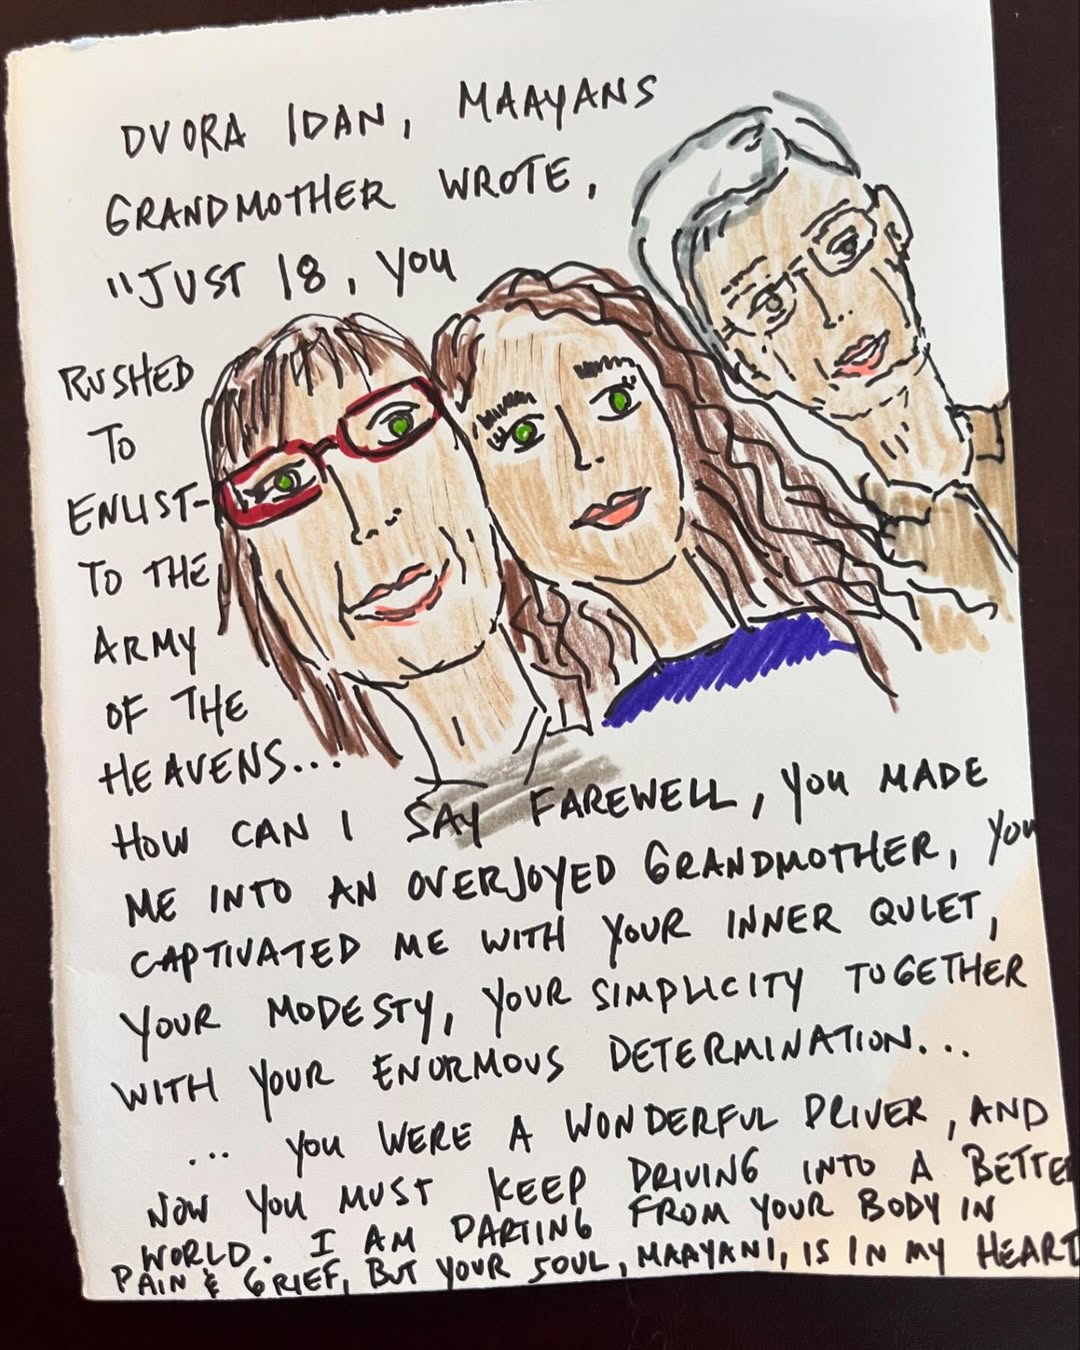 DVORA IDAN, MAAYANS
GRANDMOTHER WROTE,
"JUST 18, YOU
RUSHED
TO
ENLIST-
TO THE
ARMY
OF THE
HEAVENS...
HOW CAN I SAY FAREWELL, YOU MADE
ME INTO AN OVERJOYED GRANDMOTHER, YOU
CAPTIVATED ME WITH YOUR INNER QUIET,
YOUR MODESTY, YOUR SIMPLICITY TOGETHER
WITH YOUR ENORMOUS DETERMINATION...
... YOU WERE A WONDERFUL DRIVER, AND
NOW YOU MUST KEEP DRIVING INTO A BETTER
WORLD. I AM PARTING FROM YOUR BODY IN
PAIN & GRIEF, BUT YOUR SOUL, MAAYANI, IS IN MY HEART